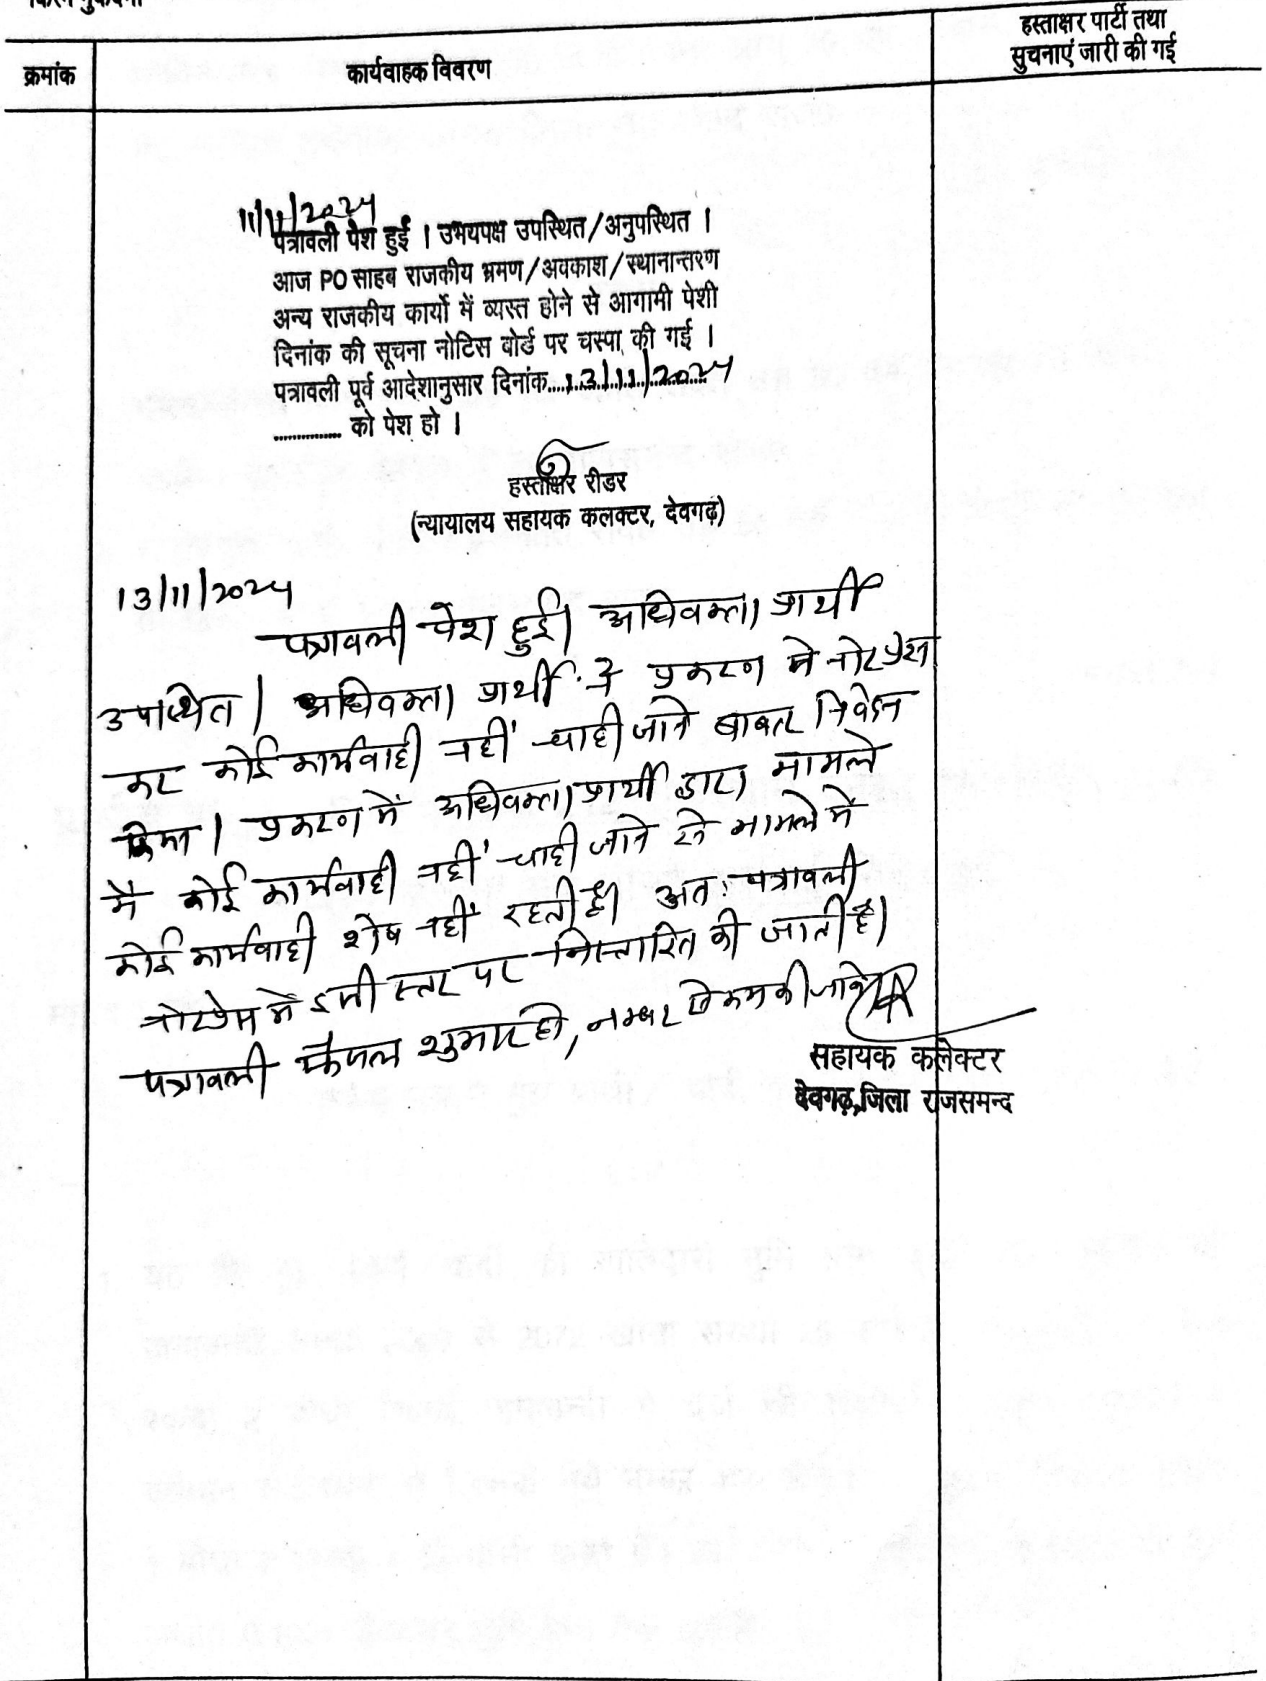 हस्ताक्षर पार्टी तथा
सुचनाएं जारी की गई
क्रमांक
कार्यवाहक विवरण
11/11/2024
पत्रावली पेश हुई । उभयपक्ष उपस्थित/अनुपस्थित ।
आज PO साहब राजकीय भ्रमण/अवकाश/स्थानान्तरण
अन्य राजकीय कार्यो में व्यस्त होने से आगामी पेशी
दिनांक की सूचना नोटिस बोर्ड पर चस्पा की गई ।
पत्रावली पूर्व आदेशानुसार दिनांक....13/11/2024
............... को पेश हो ।
हस्ताक्षर रीडर
(न्यायालय सहायक कलक्टर, देवगढ़)
13/11/2024
पत्रावली पेश हुई। अधिवक्ता प्रार्थी
उपस्थित। अधिवक्ता प्रार्थी ने प्रकरण में नोटप्रेस
कर कोई कार्यवाही नहीं चाही जाने बाबत निवेदन
किया। प्रकरण में अधिवक्ता प्रार्थी द्वारा मामले
में कोई कार्यवाही नहीं चाही जाने से मामले में
कोई कार्यवाही शेष नहीं रहती है। अतः पत्रावली
नोटप्रेस में इसी स्तर पर निस्तारित की जाती है।
पत्रावली फैसल शुमार हो, नम्बर से कम की जावे
सहायक कलेक्टर
देवगढ़,जिला राजसमन्द